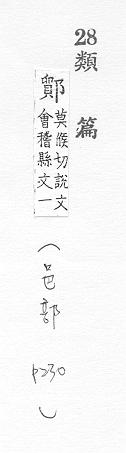 28
類
篇
鄮
莫候切說文
會稽縣文一
（邑部 p230）